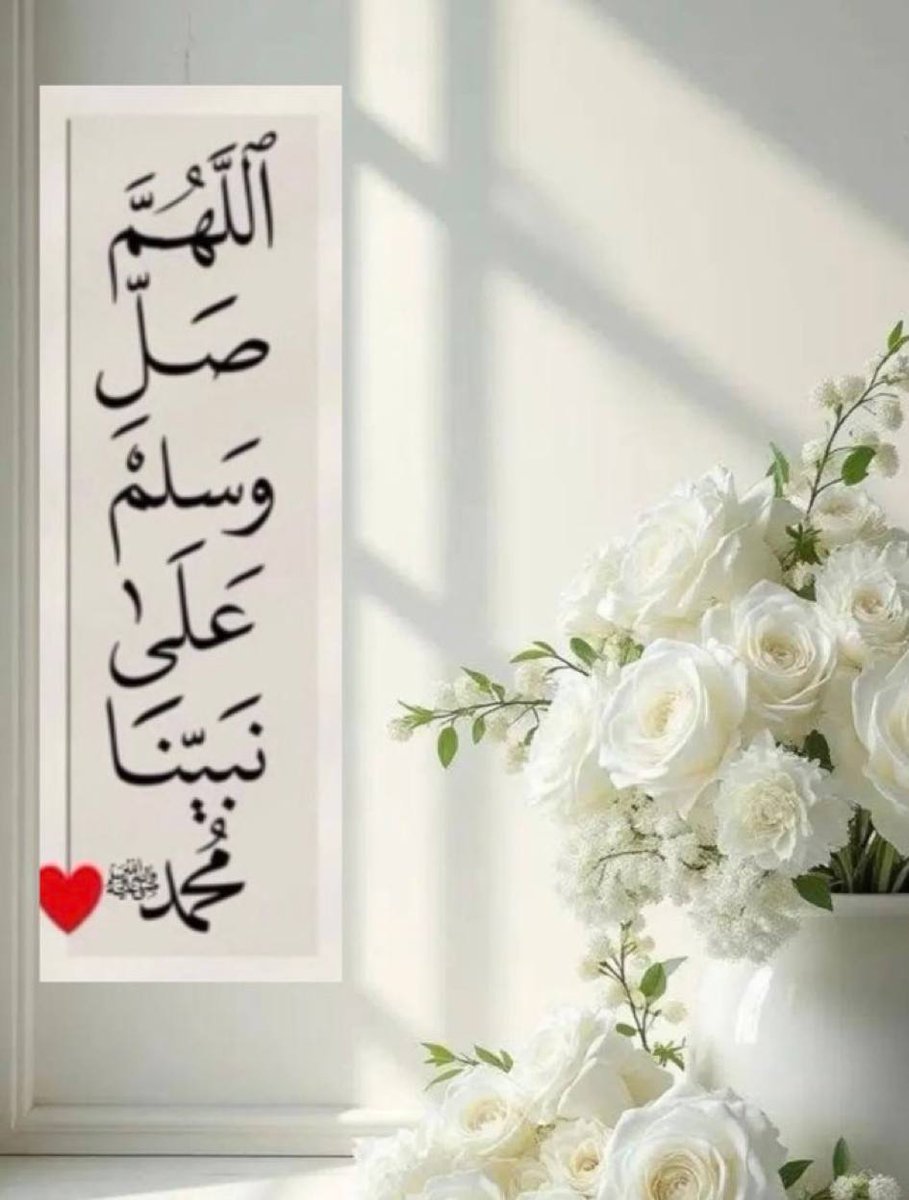 ٱللَّهُمَّ
صَلِّ
وَسَلِمْ
عَلَىٰ
نَبَيّنَا
مُحمد ﷺ